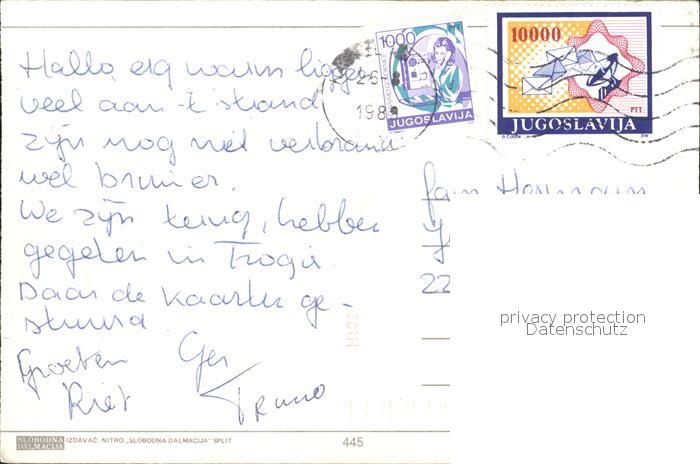 Hallo, erg warm liggen
veel aan 't strand
zijn nog niet verbrand
wel bruiner.
We zijn terug, hebben
gegeten in Trogir
Daar de kaarten ge-
stuurd
Groeten Ger
Riet Truno
1000
PTT
JUGOSLAVIJA
1989
10000
PTT
JUGOSLAVIJA
Fam Hermans
22
privacy protection
Datenschutz
SLOBODNA
DALMACIJA
IZDAVAČ: NITRO „SLOBODNA DALMACIJA" SPLIT
445